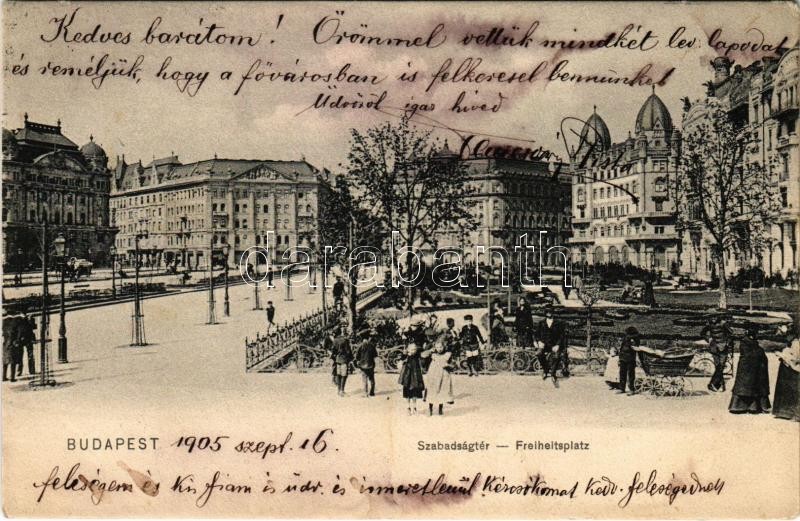 Kedves barátom! Örömmel vettük mindkét lev. lapodat
és reméljük, hogy a fővárosban is felkeresel bennünket
Üdvözöl igaz hived
darabanth
BUDAPEST 1905 szept. 16.
Szabadságtér — Freiheitsplatz
feleségem és kis fiam is üdv. is ismeretlenül kedv. feleségednek